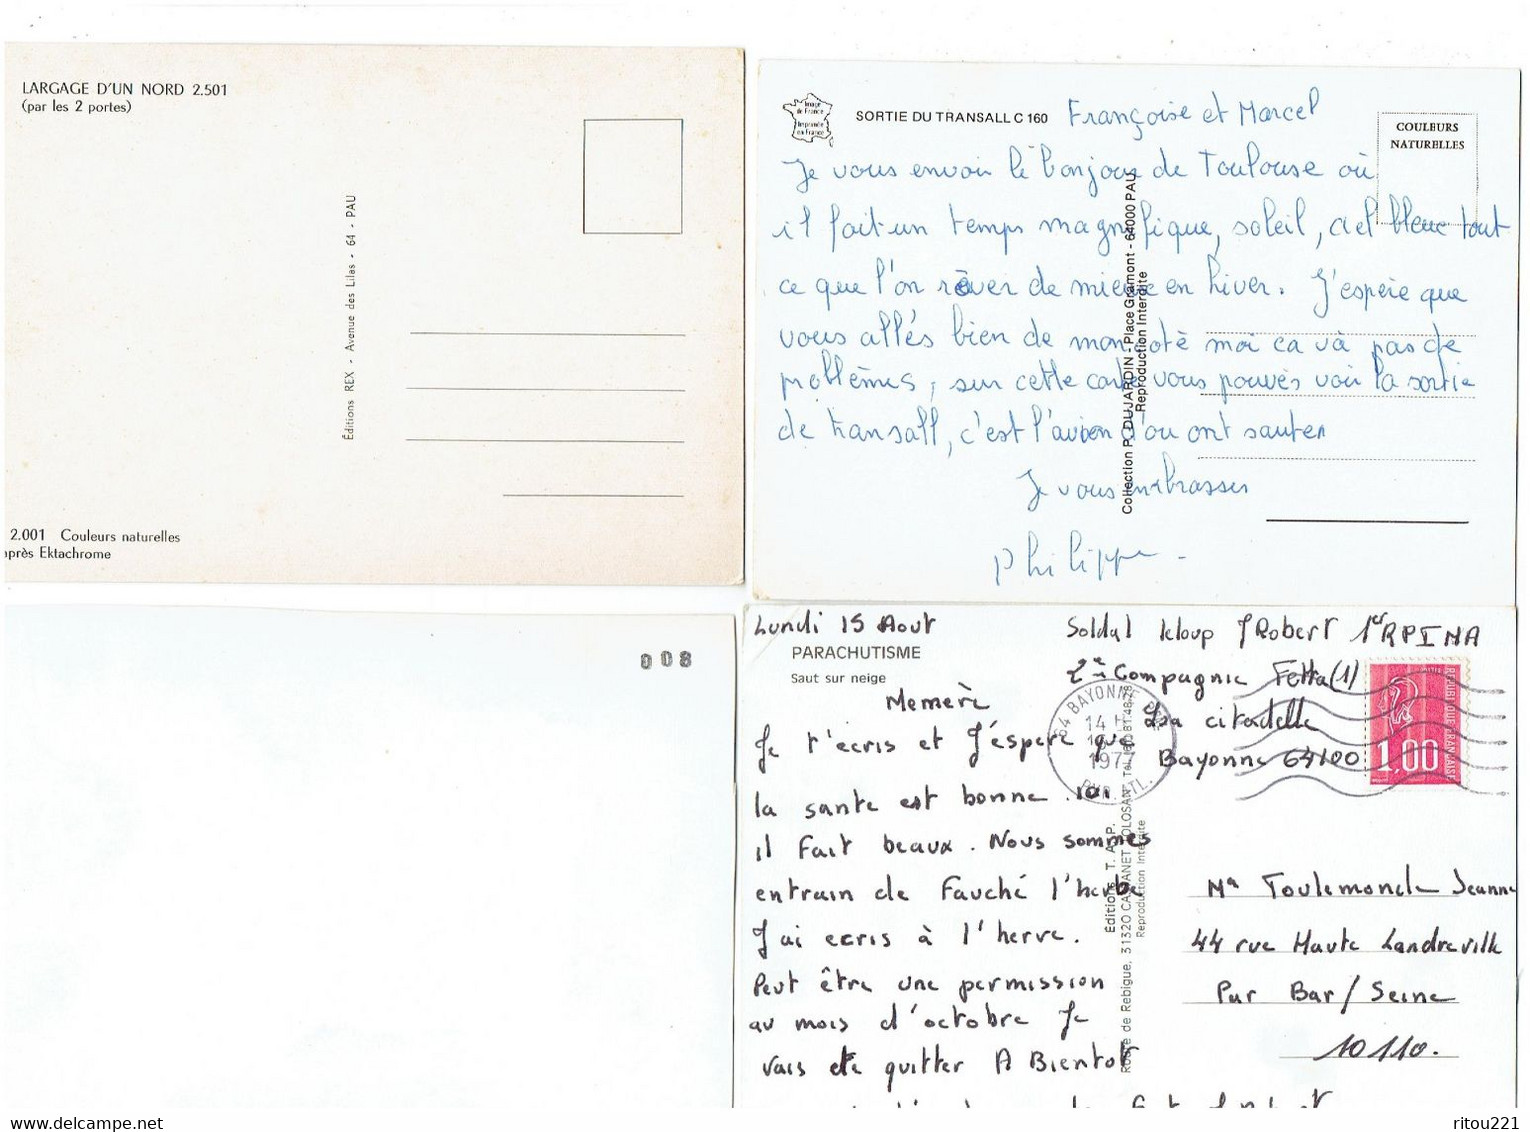 LARGAGE D'UN NORD 2.501
(par les 2 portes)
Éditions REX - Avenue des Lilas - 64 - PAU
2.001 Couleurs naturelles
après Ektachrome
Image
de France
Imprimée
en France
SORTIE DU TRANSALL C 160
COULEURS
NATURELLES
Françoise et Marcel
Je vous envoi le bonjour de Toulouse où
il fait un temps magnifique, soleil, ciel bleue tout
ce que l'on rêver de mieux en hiver. J'espère que
vous allés bien de mon coté moi ca và pas de
problèmes, sur cette carte vous pouvés voir la sortie
de transall, c'est l'avion d'ou ont sauter
Je vous embrasses
Philippe
Collection P. DUJARDIN - Place Gramont - 64000 PAU
Reproduction Interdite
008
Lundi 15 Aout
PARACHUTISME
Saut sur neige
Soldat leloup J Robert 1er RPIMA
2e Compagnie
La citadelle
Bayonne 64100
64 BAYONNE
14
1977
REPUBLIQUE FRANÇAISE
1,00
Memère
Je t'ecris et J'éspere que
la sante est bonne. Ici
il fait beaux. Nous sommes
entrain de Fauché l'herbe
J'ai ecris à l'herve.
Peut être une permission
au mois d'octobre Je
vais te quitter A Bientot
Éditions T. A. P.
Route de Rebigue, 31320 CASTANET TOLOSAN
Reproduction Interdite
Toulemonde Jeanne
44 rue Haute Landreville
Par Bar/Seine
10110.
ritou221